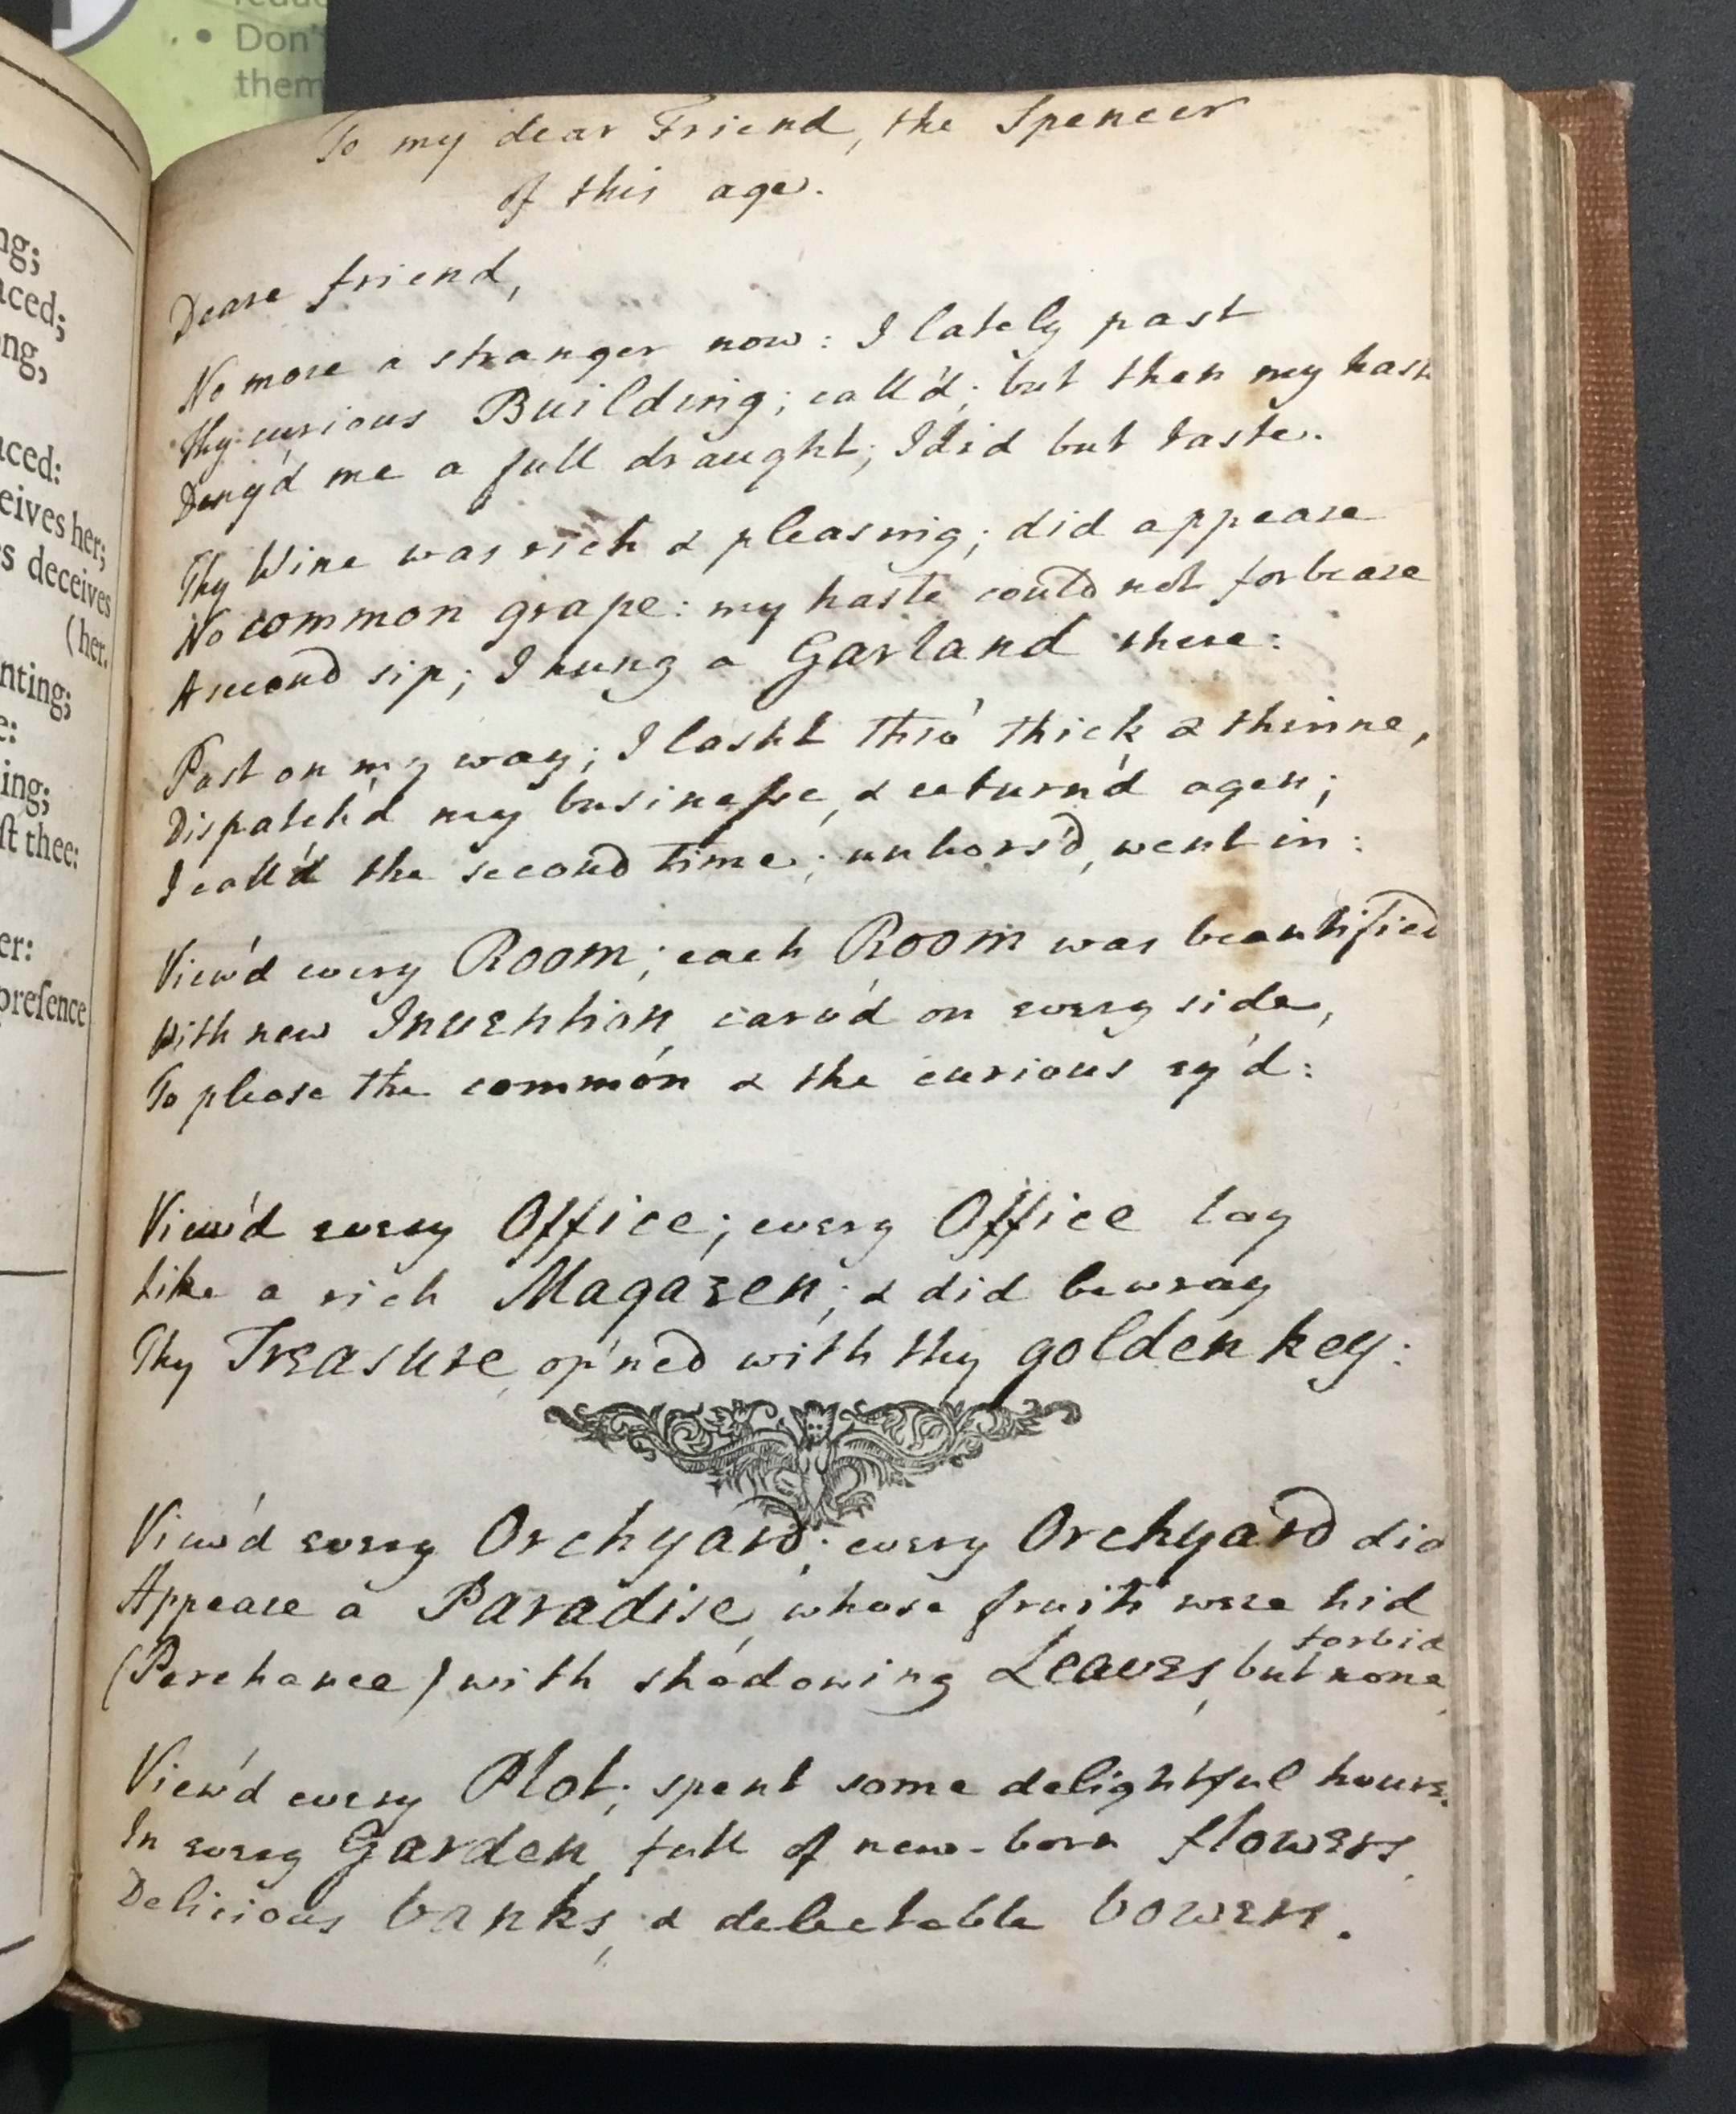 • Don't
them
ng;
aced;
ong,
aced:
eives her;
s deceives
(her.
nting;
e:
ing;
ſt thee:
er:
preſence
To my dear Friend, the Spencer
of this age.
Deare friend,
No more a stranger now: I lately past
Thy curious Building; call'd; but then my hast
Deny'd me a full draught; I did but taste.
Thy Wine was rich & pleasing; did appeare
No common grape: my haste could not forbeare
A second sip; I hung a Garland there:
Past on my way; I lasht thro' thick & thinne,
Dispatch'd my businesse, & return'd agen;
I call'd the second time; unhors'd, went in:
View'd every Room; each Room was beautified
With new Invention, carv'd on every side,
To please the common & the curious ey'd:
View'd every Office; every Office lay
Like a rich Magazen; & did bewray
Thy Treasure, op'ned with thy golden key:
View'd every Orchyard; every Orchyard did
Appeare a Paradise, whose fruits were hid
(Perchance) with shadowing Leaves, but none forbid
View'd every Plot; spent some delightful hours
In every Garden, full of new-born flowers,
Delicious banks, & delectable bowers.